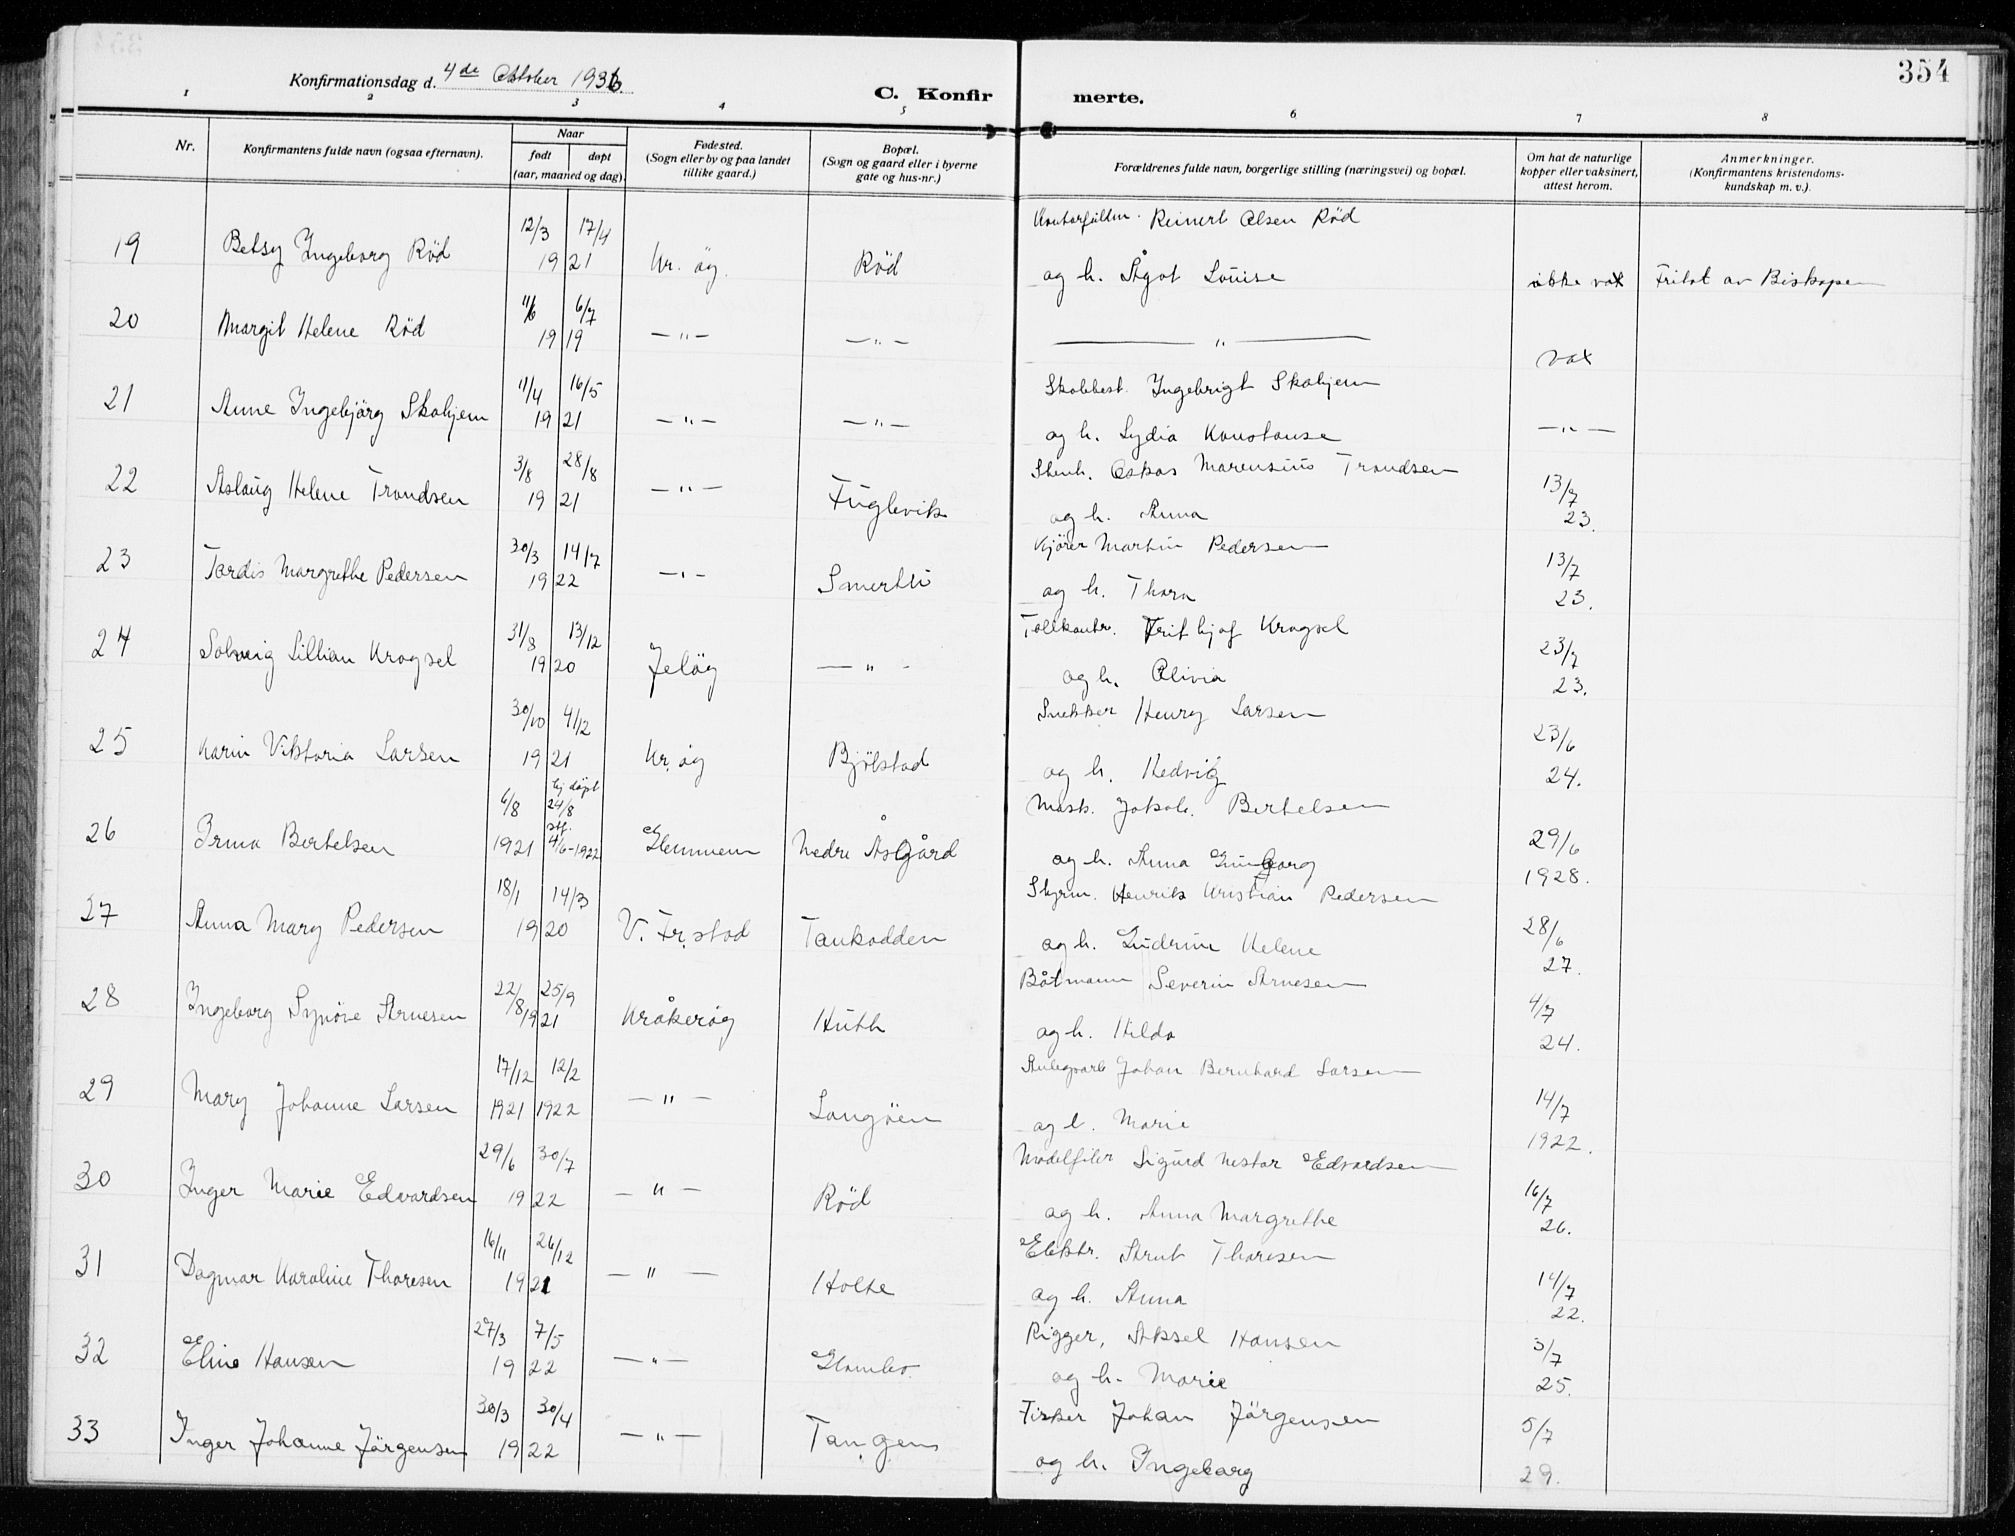 354
Konfirmationsdag d. 4de Oktober 1936.
C. Konfirmerte.
1 2 3 4 5 6 7 8
Nr.
Konfirmantens fulde navn (ogsaa efternavn).
Naar
født døpt
(aar, maaned og dag).
Fødested.
(Sogn eller by og paa landet
tillike gaard.)
Bopæl.
(Sogn og gaard eller i byerne
gate og hus-nr.)
Forældrenes fulde navn, borgerlige stilling (næringsvei) og bopæl.
Om hat de naturlige
kopper eller vaksinert,
attest herom.
Anmerkninger.
(Konfirmantens kristendoms-
kundskap m. v.).
12/3 17/4 Reinert Olsen Rød
19 Betsy Ingeborg Rød 19 21 Kr. øy. Rød og h. Ågot Louise ikke vax Fritat av Biskopen
11/6 6/7
20 Margit Helene Rød 19 19 — " — — " — — " — vax
11/4 16/5 Skobest. Ingebrigt Skohjem
21 Anne Ingebjörg Skohjem 19 21 — " — — " — og h. Lydia Konstanse — " —
3/8 28/8 Stenh. Oskar Marensius Trondsen
22 Aslaug Helene Trondsen 19 21 — " — Fuglevik og h. Anna 13/7 23.
30/3 14/7 Kjörer Martin Pedersen
23 Tordis Margrethe Pedersen 19 22 — " — Smertu og h. Thora 13/7 23.
31/8 13/12 Tollkontr. Frithjof Krogsel
24 Solveig Lillian Krogsel 19 20 Jeløy — " — og h. Olivia 23/7 23.
30/10 4/12 Snekker Henry Larsen
25 Karin Viktoria Larsen 19 21 Kr. øy Bjölstad og h. Hedvig 23/6 24.
6/8 hj. døpt 24/8 stf. Mask. Jakob. Bertelsen
26 Irma Bertelsen 1921 4/6-1922 Glemmen Nedre Åsgård og h. Anna Gunborg 29/6 1928.
18/1 14/3 Styrm. Henrik Kristian Pedersen
27 Anna Mary Pedersen 19 20 V. Fr.stad Tankodden og h. Gudrun Helene 28/6 27.
22/8 25/9 Båtmann Severin Arnesen
28 Ingeborg Synöve Arnesen 19 21 Kråkerøy Huth og h. Hilda 4/7 24.
17/12 12/2 Anlegsarb Johan Bernhard Larsen
29 Mary Johanne Larsen 1921 1922 — " — Langöen og h. Marie 14/7 1922.
29/6 30/7 Modelfiler Sigurd Nestor Edvardsen
30 Inger Marie Edvardsen 19 22 — " — Rød og h. Anna Margrethe 16/7 26.
16/11 26/12 Elektr. Arnt Thoresen
31 Dagmar Karoline Thoresen 19 21 — " — Holte og h. Anna 14/7 22.
27/3 7/5 Rigger, Aksel Hansen
32 Eline Hansen 19 22 — " — Glombo. og h. Marie 3/7 25.
30/3 30/4 Fisker Johan Jörgensen
33 Inger Johanne Jörgensen 19 22 — " — Tangen og h. Ingeborg 5/7 29.